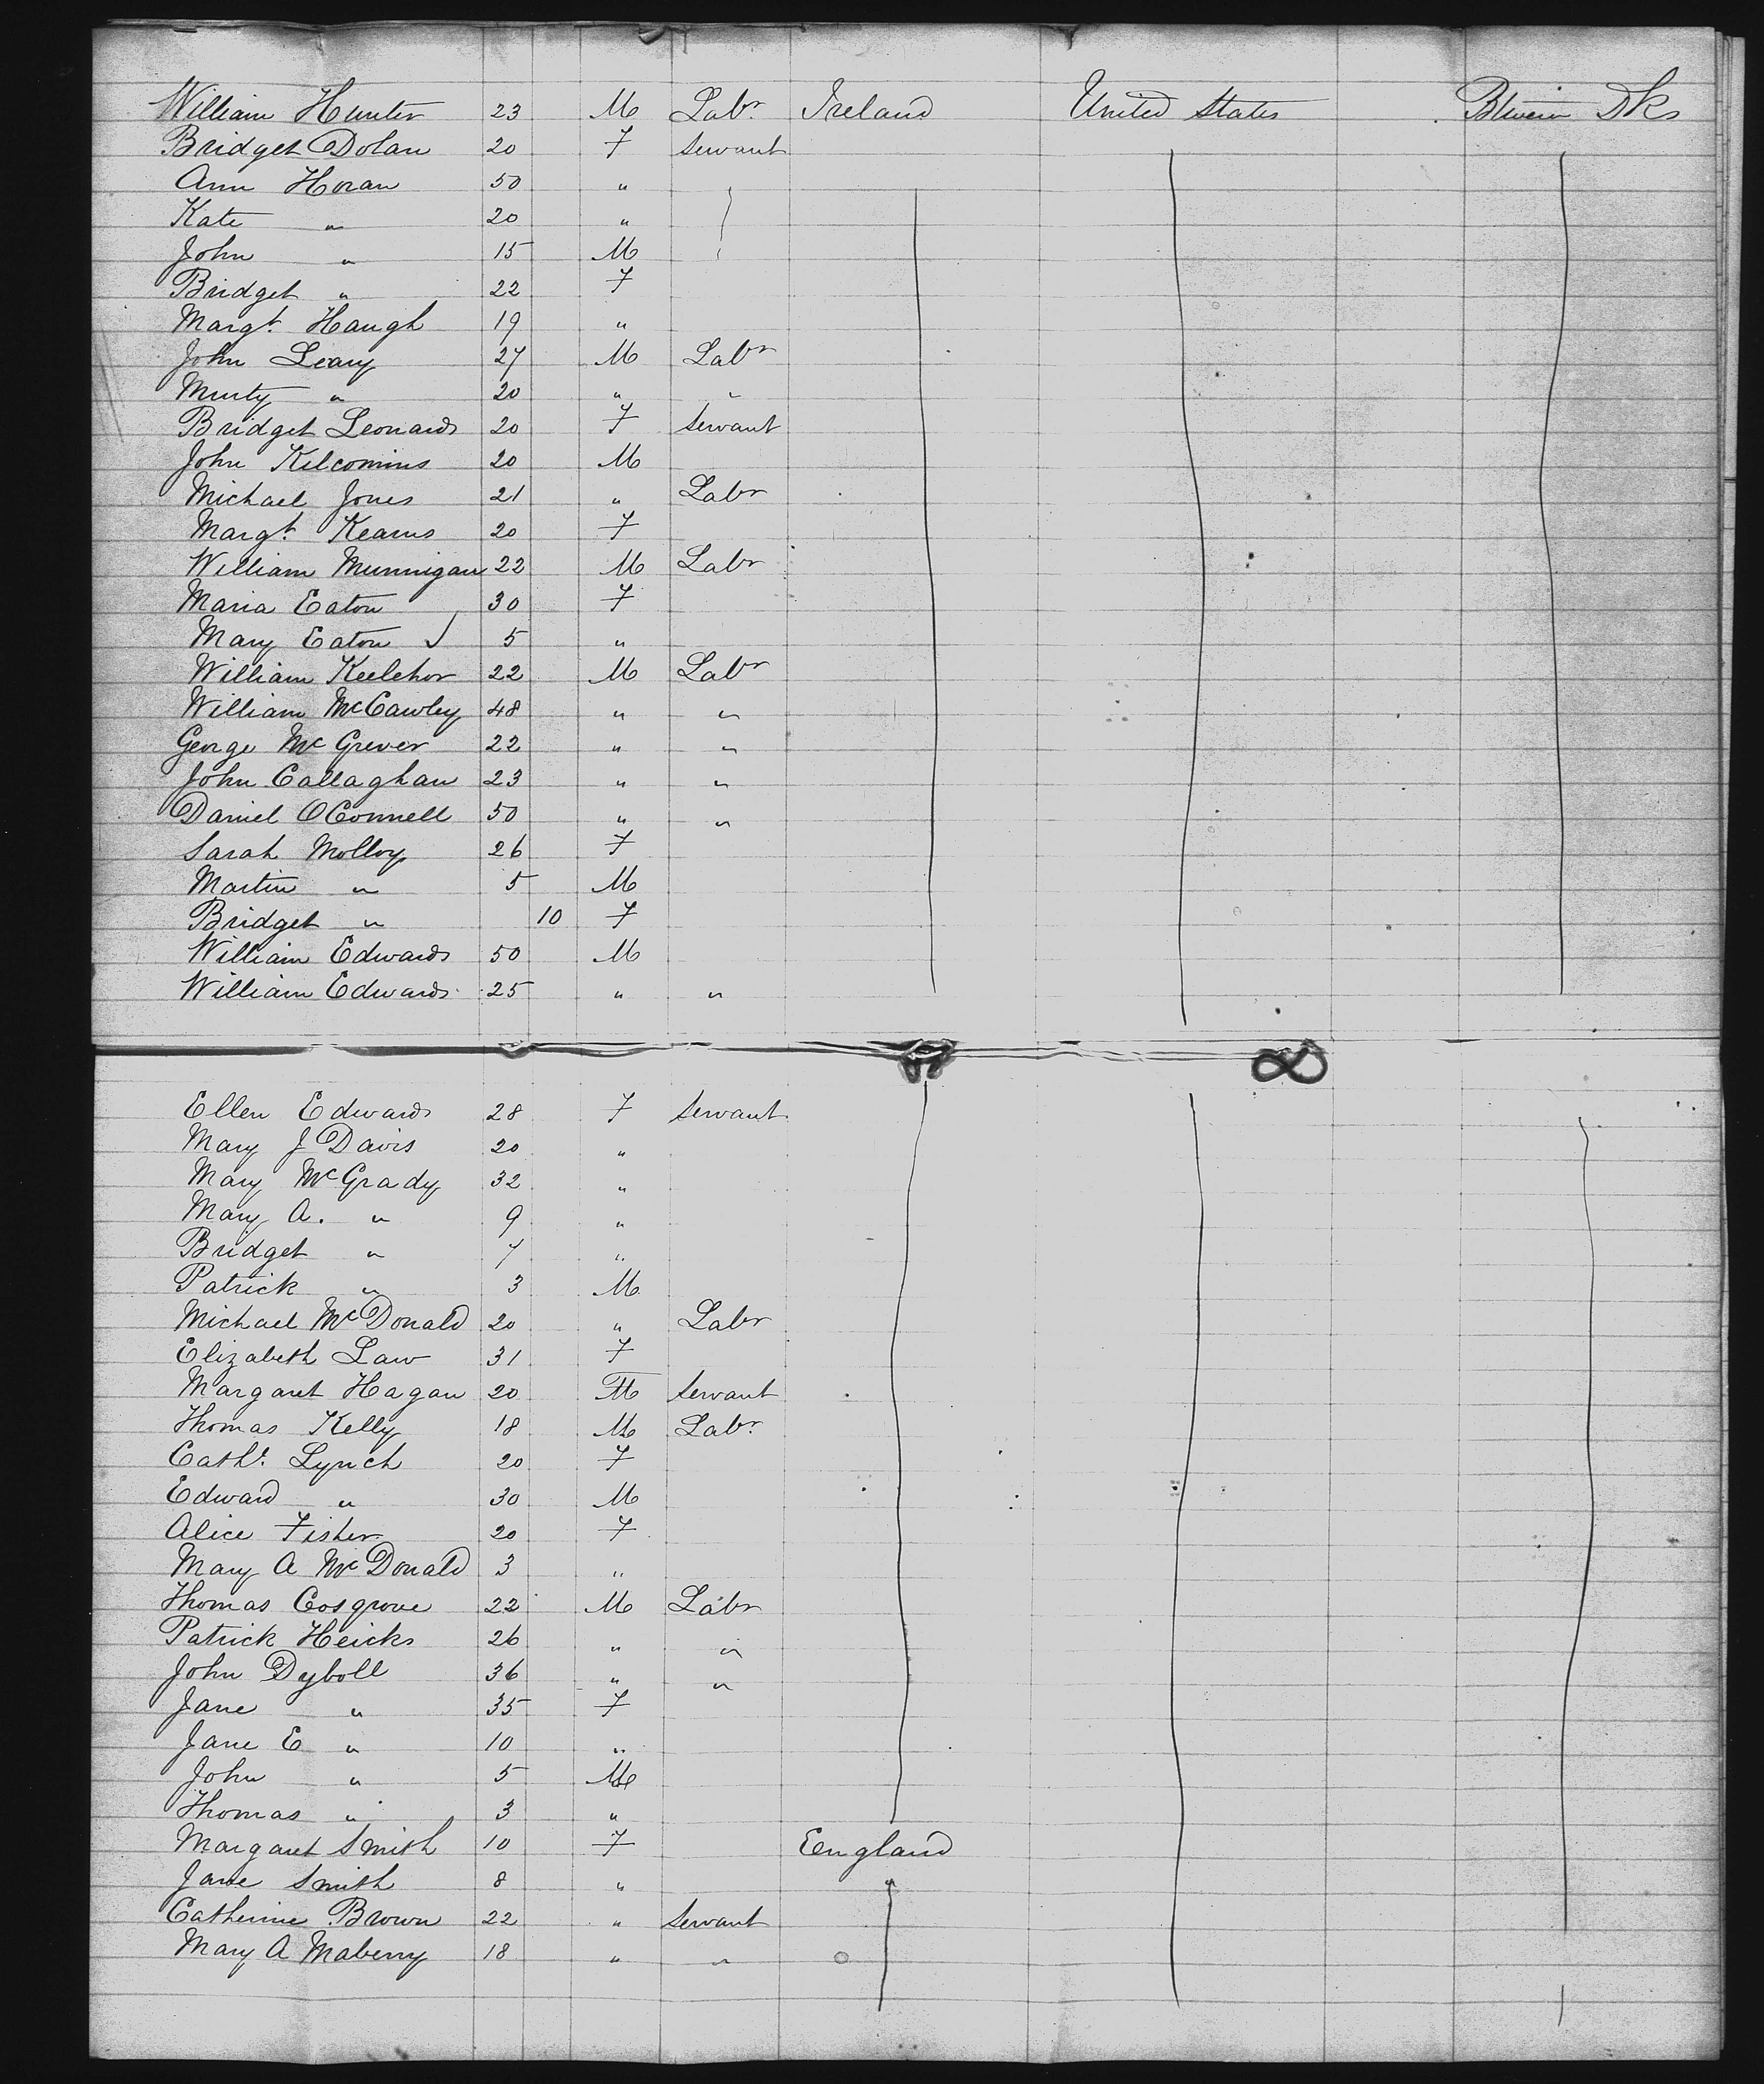 William Hunter 23 M Labr Ireland United States Btween Dks
Bridget Dolan 20 F Servant
Ann Horan 50 "
Kate " 20 "
John " 15 M
Bridget " 22 F
Margt. Haugh 19 "
John Leary 27 M Labr
Murty " 20 " "
Bridget Leonard 20 F Servant
John Kilcomins 20 M
Michael Jones 21 " Labr
Margt. Kearns 20 F
William Munnigan 22 M Labr
Maria Eaton 30 F
Mary Eaton ✓ 5 "
William Keelehor 22 M Labr
William McCawley 48 " "
George McGrever 22 " "
John Callaghan 23 " "
Daniel OConnell 50 " "
Sarah Molloy 26 F
Martin " 5 M
Bridget " 10 F
William Edwards 50 M
William Edwards 25 " "
Ellen Edwards 28 F Servant
Mary J Davis 20 "
Mary McGrady 32 "
Mary A. " 9 "
Bridget " 7 "
Patrick " 3 M
Michael McDonald 20 " Labr
Elizabeth Law 31 F
Margaret Hagan 20 Servant
Thomas Kelly 18 M Labr
Cath. Lynch 20 F
Edward " 30 M
Alice Fisher 20 F
Mary A McDonald 3 "
Thomas Cosgrove 22 M Labr
Patrick Heicks 26 " "
John Dyboll 36 " "
Jane " 35 F
Jane E " 10 "
John " 5 M
Thomas " 3 "
Margaret Smith 10 F England
Jane Smith 8 " "
Catherine Brown 22 " Servant
Mary A Maberry 18 " "